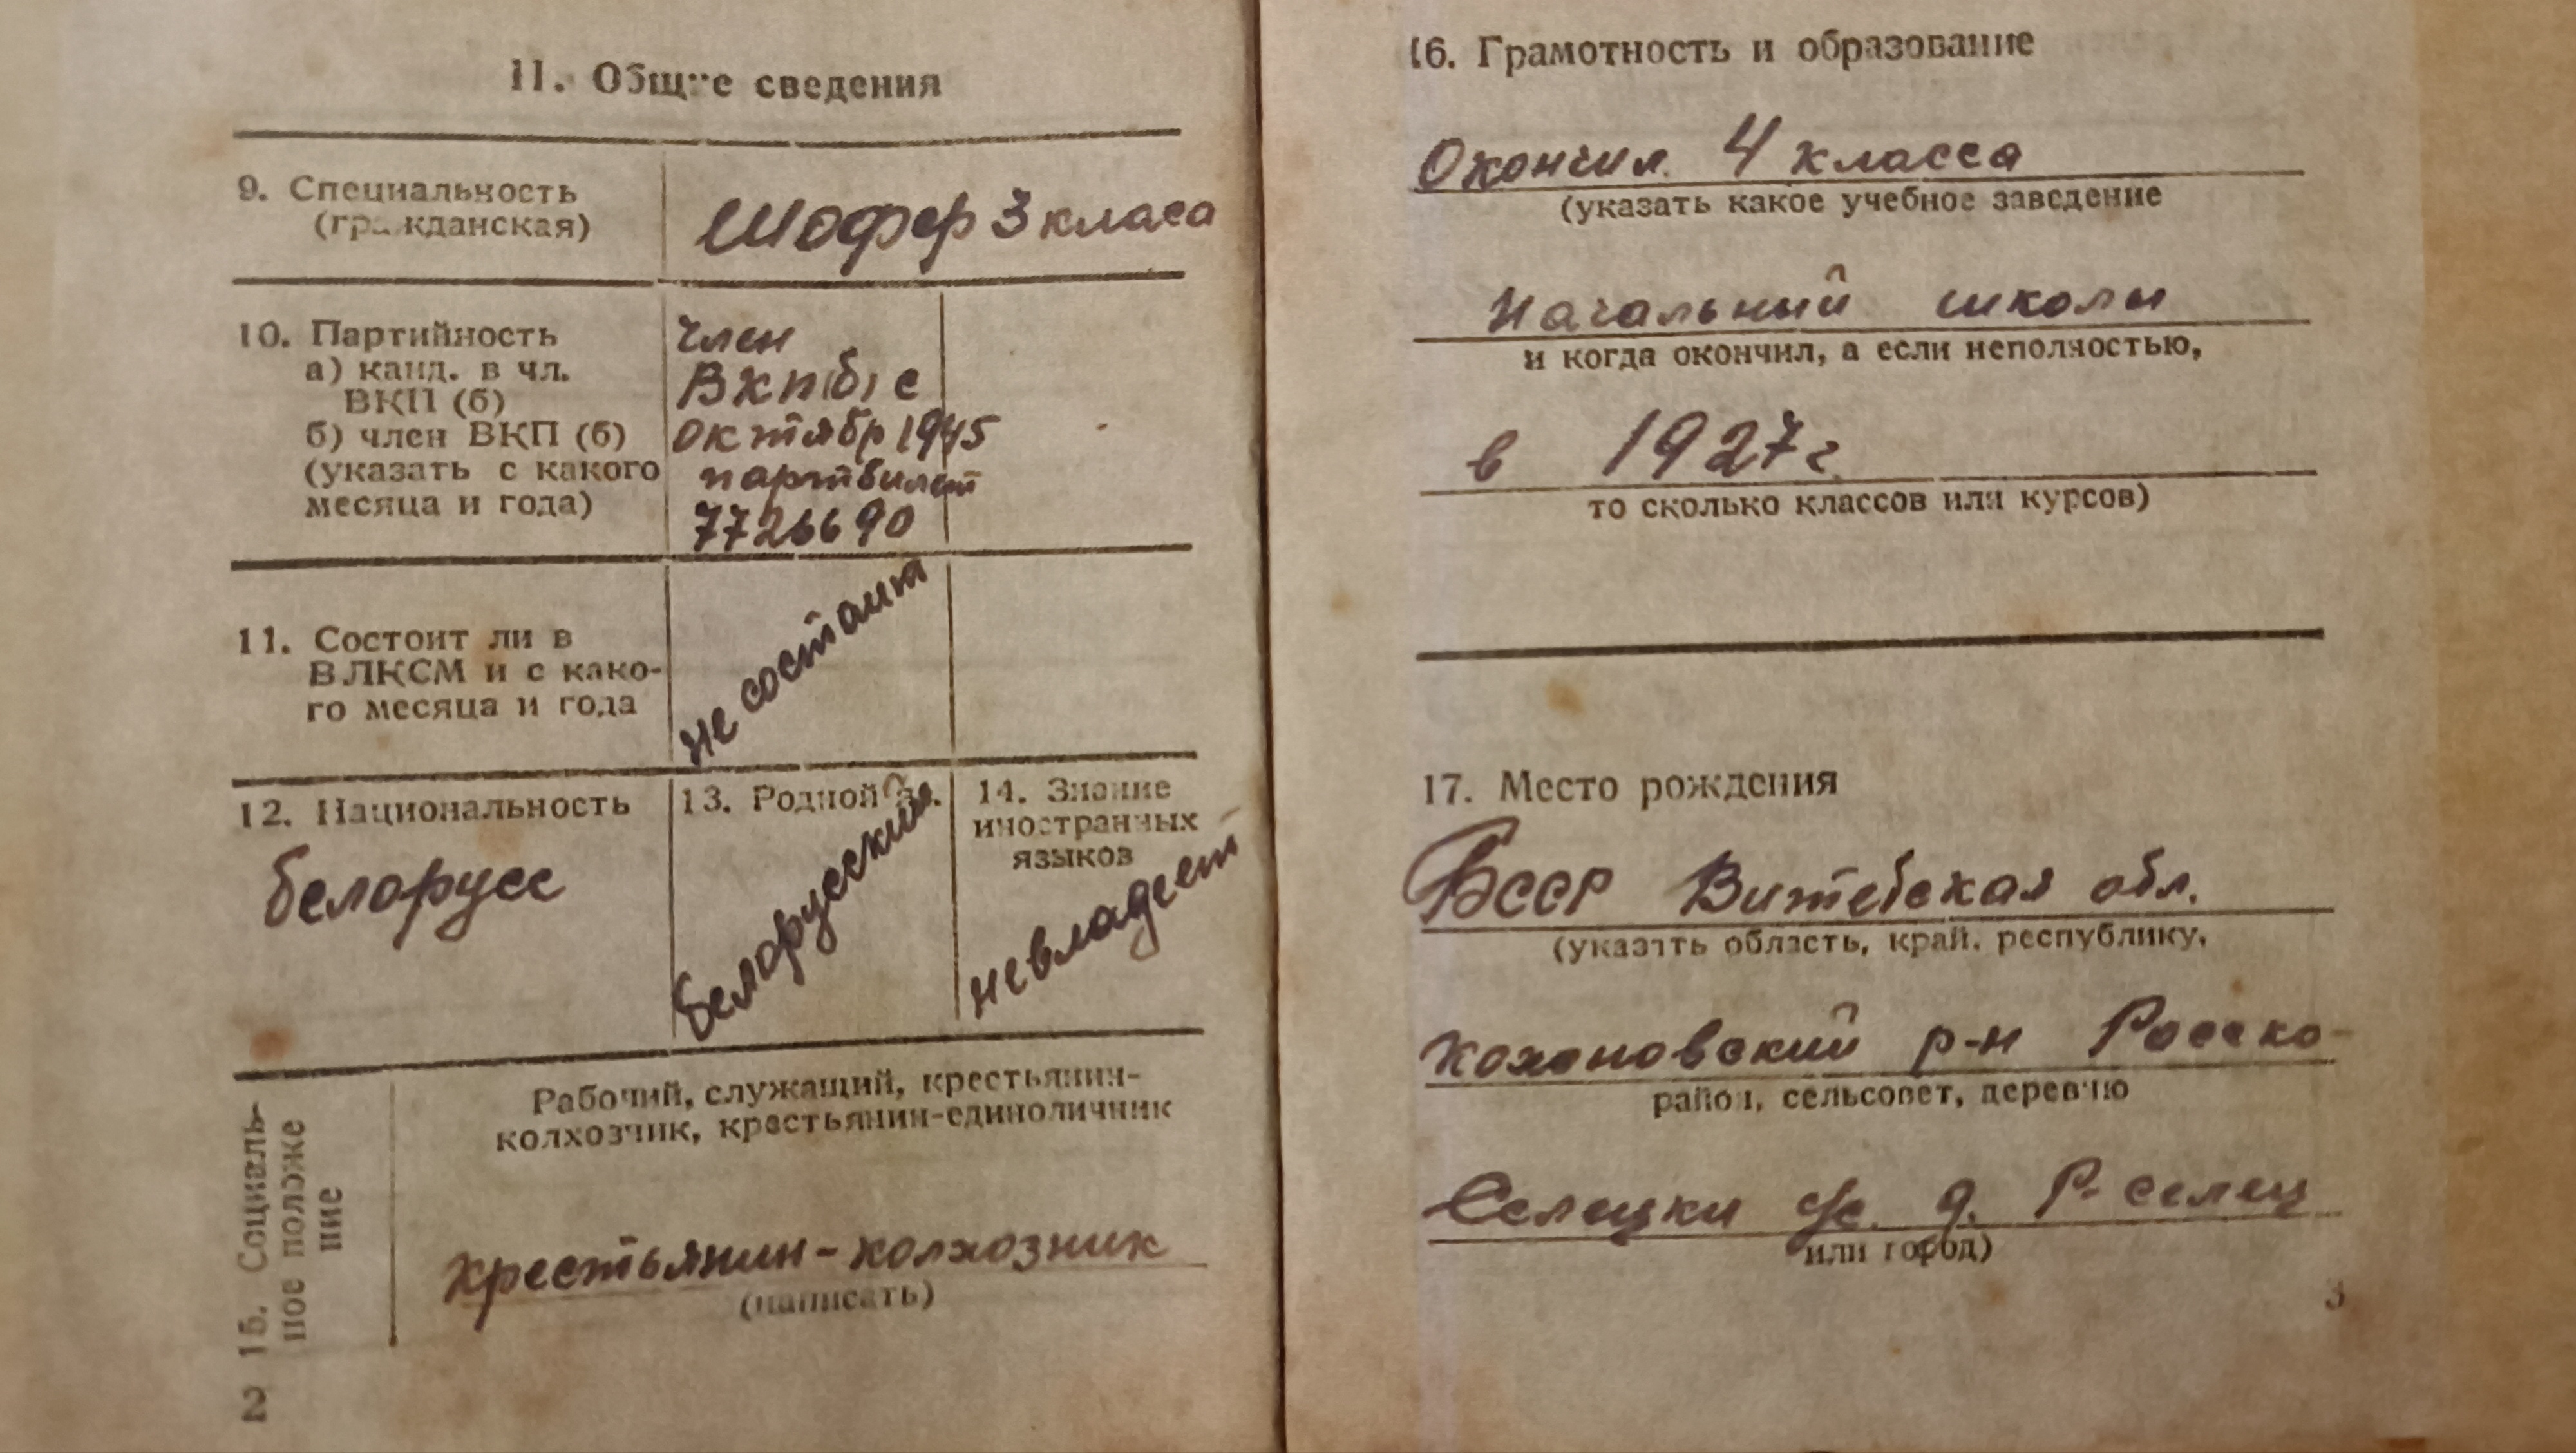 II. Общие сведения
9. Специальность
(гражданская)
Шофер 3 класа
10. Партийность
а) канд. в чл.
ВКП (б)
б) член ВКП (б)
(указать с какого
месяца и года)
член
ВКП(б) с
октябр 1945
партбилет
7726690
11. Состоит ли в
ВЛКСМ и с како-
го месяца и года
не состоит
12. Национальность
белорусс
13. Родной яз.
белорусский
14. Знание
иностранных
языков
невладеет
15. Социаль-
ное положе
ние
Рабочий, служащий, крестьянин-
колхозчик, крестьянин-единоличник
крестьянин-колхозник
(написать)
2
16. Грамотность и образование
Окончил 4 класса
(указать какое учебное заведение
Начальный школы
и когда окончил, а если неполностью,
в 1927 г.
то сколько классов или курсов)
17. Место рождения
БССР Витебская обл.
(указать область, край, республику,
Кохановский р-н Росско-
район, сельсовет, деревню
Селецки с/с. д. Р-селец
или город)
3